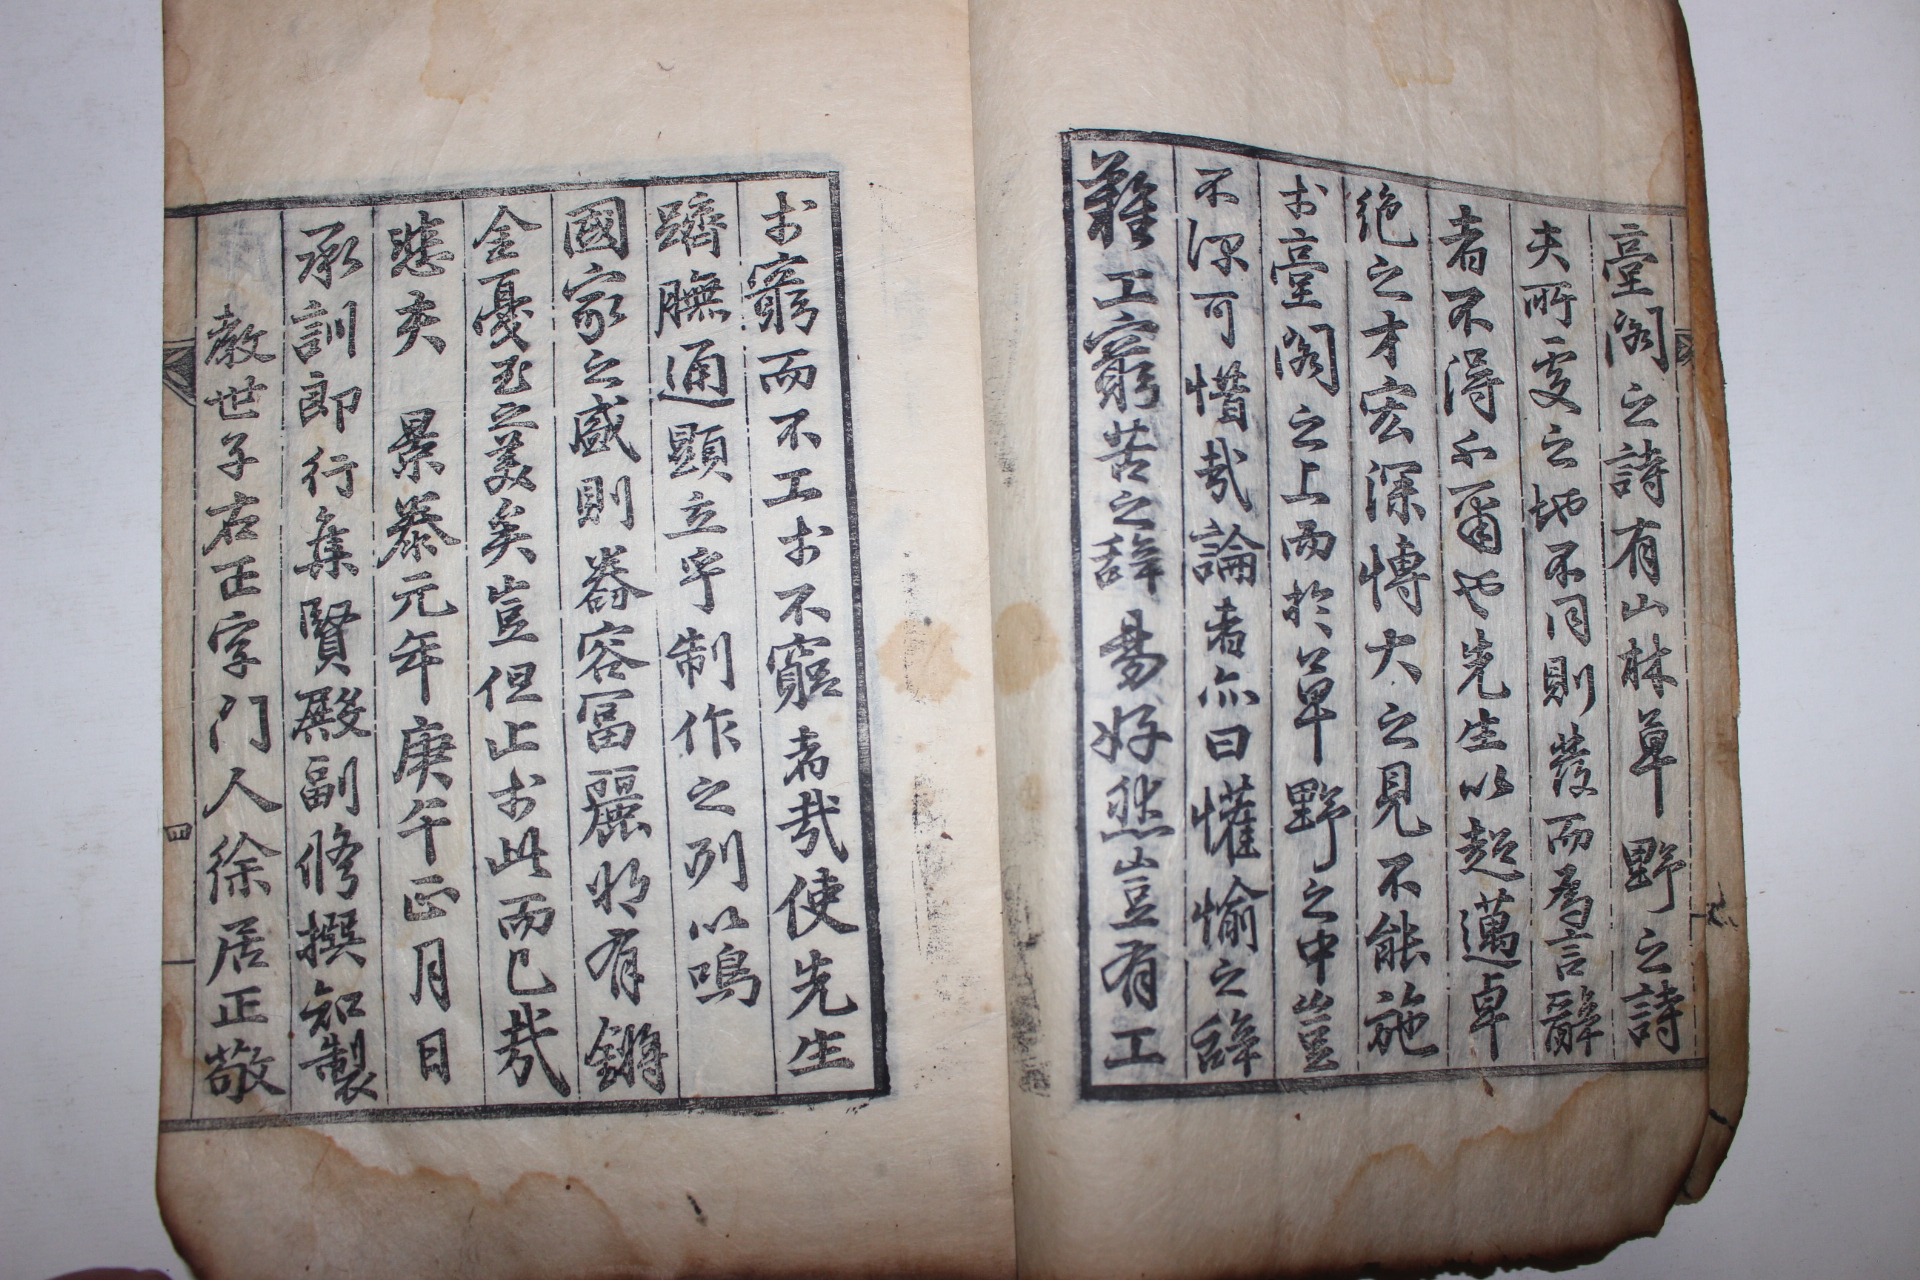 臺閣之詩有山林草野之詩
夫所處之地不同則發而爲言辭
者不得不爾也先生以超邁卓
絶之才宏深博大之見不能施
於臺閣之上而於草野之中豈
不深可惜哉論者亦曰懽愉之辭
難工窮苦之辭易好然豈有工
於窮而不工於不窮者哉使先生
躋膴通顯立乎制作之列以鳴
國家之盛則舂容富麗將有鏘
金戛玉之美矣豈但止於此而已哉
悲夫 景泰元年庚午正月日
承訓郎行集賢殿副修撰知製
敎世子右正字門人徐居正敬
四